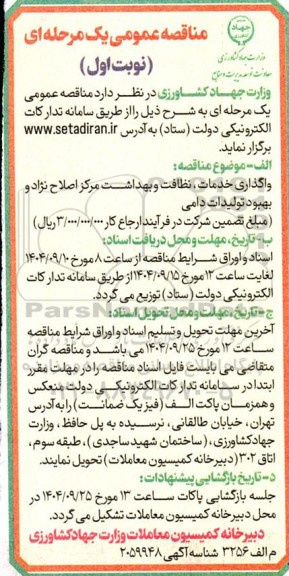 مناقصه عمومی یک مرحله ای
(نوبت اول)
جهاد
وزارت جهاد کشاورزی
معاونت توسعه مدیریت و منابع
وزارت جهاد کشاورزی در نظر دارد مناقصه عمومی
یک مرحله ای به شرح ذیل را از طریق سامانه تدارکات
الکترونیکی دولت (ستاد) به آدرس www.setadiran.ir
برگزار نماید.
الف – موضوع مناقصه:
واگذاری خدمات، نظافت و بهداشت مرکز اصلاح نژاد و
بهبود تولیدات دامی
(مبلغ تضمین شرکت در فرآیند ارجاع کار ۳/۰۰۰/۰۰۰/۰۰۰ ریال)
ب – تاریخ، مهلت و محل دریافت اسناد:
اسناد و اوراق شرایط مناقصه از ساعت ۸ مورخ ۱۴۰۴/۰۹/۱۰
لغایت ساعت ۱۲ مورخ ۱۴۰۴/۰۹/۱۵ از طریق سامانه تدارکات
الکترونیکی دولت (ستاد) توزیع می گردد.
ج – تاریخ، مهلت و محل تحویل اسناد:
آخرین مهلت تحویل و تسلیم اسناد و اوراق شرایط مناقصه
ساعت ۱۲ مورخ ۱۴۰۴/۰۹/۲۵ می باشد و مناقصه گران
متقاضی می بایست فایل اسناد مناقصه را در مهلت مقرر
ابتدا در سامانه تدارکات الکترونیکی دولت منعکس
و همزمان پاکت الف (فیزیک ضمانت) را به آدرس
تهران، خیابان طالقانی، نرسیده به پل حافظ، وزارت
جهادکشاورزی، (ساختمان شهید ساجدی)، طبقه سوم،
اتاق ۳۰۲ (دبیرخانه کمیسیون معاملات) تحویل نمایند.
د – تاریخ بازگشایی پیشنهادات:
جلسه بازگشایی پاکات ساعت ۱۳ مورخ ۱۴۰۴/۰۹/۲۵ در
محل دبیرخانه کمیسیون معاملات تشکیل می گردد.
دبیرخانه کمیسیون معاملات وزارت جهادکشاورزی
م الف ۳۲۵۶ شناسه آگهی ۲۰۵۹۹۴۸